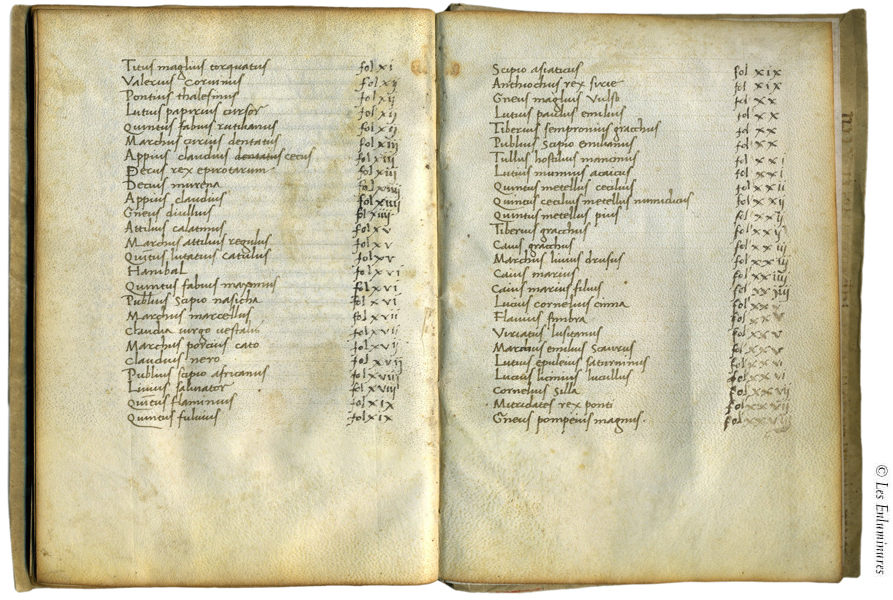 Titus maglius torquatus fol xi
Valerius Coruinus fol xij
Pontius thalesinus fol xij
Lutius papirius cursor fol xij
Quintus fabius rutilianus fol xij
Marchus curius dentatus fol xiij
Appius claudius dentatus cecus fol xiij
rex epirotarum fol xiij
Decius murena fol xiiij
Appius claudius fol xiiij
Gneus duillius fol xiiij
Attilius calatinus fol x v
Marchus attilius regulus fol x v
Quintus lutatius catulus fol x v
Hanibal fol x v i
Quintus fabius maximus fol x v i
Publius Scipio nasicha fol x v i
Marchus marcellus fol x v ij
Claudia uirgo uestalis fol x v ij
Marchus porcius cato fol x v ij
Claudius nero fol x v ij
Publius scipio africanus fol x v iij
Liuius salinator fol x v iij
Quintus flaminius fol x i x
Quintus fuluius fol x i x
Scipio asiaticus fol x i x
Anthiochus rex sirie fol x i x
Gneus maglius Vulso fol x x
Lutius paulus emilius fol x x
Tiberius sempronius gracchus fol x x
Publius Scipio emilianus fol x x
Tullus hostilius mancinus fol x x i
Lutius mumius acaicus fol x x i
Quintus metellus cecilius fol x x ij
Quintus cecilius metellus numidicus fol x x ij
Quintus metellus pius fol x x ij
Tiberius gracchus fol x x ij
Caius gracchus fol x x iij
Marchus liuius drusus fol x x iij
Caius marius fol x x iij
Caius marius filius fol x x iiij
Lucius cornelius cinna fol x x
Flauius fimbra fol x x v
Viriatus lusitanus fol x x v
Marchus emilius Scaurus fol x x v
Lutius apuleius saturninus fol x x v i
Lucius licinius lucullus fol x x v i
Cornelius Silla fol x x v ij
Mitridates rex ponti fol x x v ij
Gneus pompeius magnus. fol x x v ij
© Les Enluminures